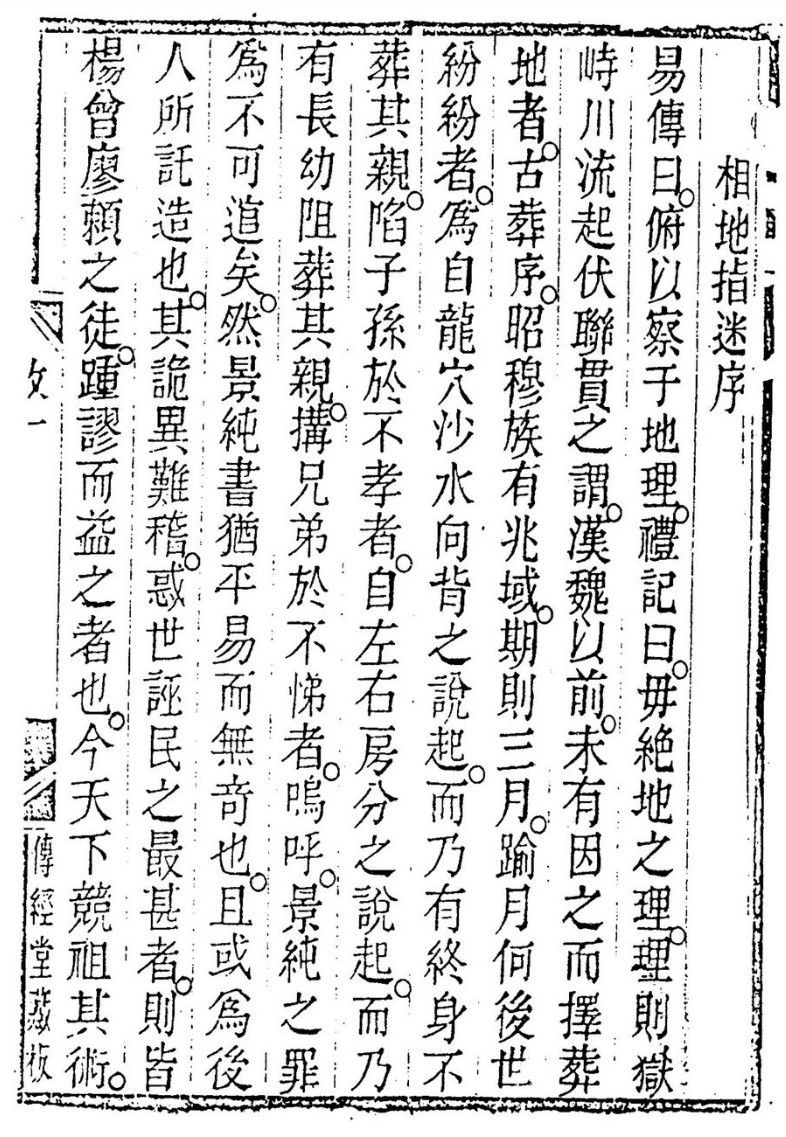 相地指迷序
易傳曰。俯以察于地理。禮記曰。毋絶地之理。理則嶽
峙川流起伏聯貫之謂。漢魏以前。未有因之而擇葬
地者。古葬序。昭穆族有兆域。期則三月。踰月何後世
紛紛者。爲自龍穴沙水向背之說起。而乃有終身不
葬其親。陷子孫於不孝者。自左右房分之說起。而乃
有長幼阻葬其親。搆兄弟於不悌者。嗚呼。景純之罪
爲不可逭矣。然景純書猶平易而無奇也。且或爲後
人所託造也。其詭異難稽。惑世誣民之最甚者。則皆
楊曾廖賴之徒。踵謬而益之者也。今天下競祖其術。
傳經堂藏板